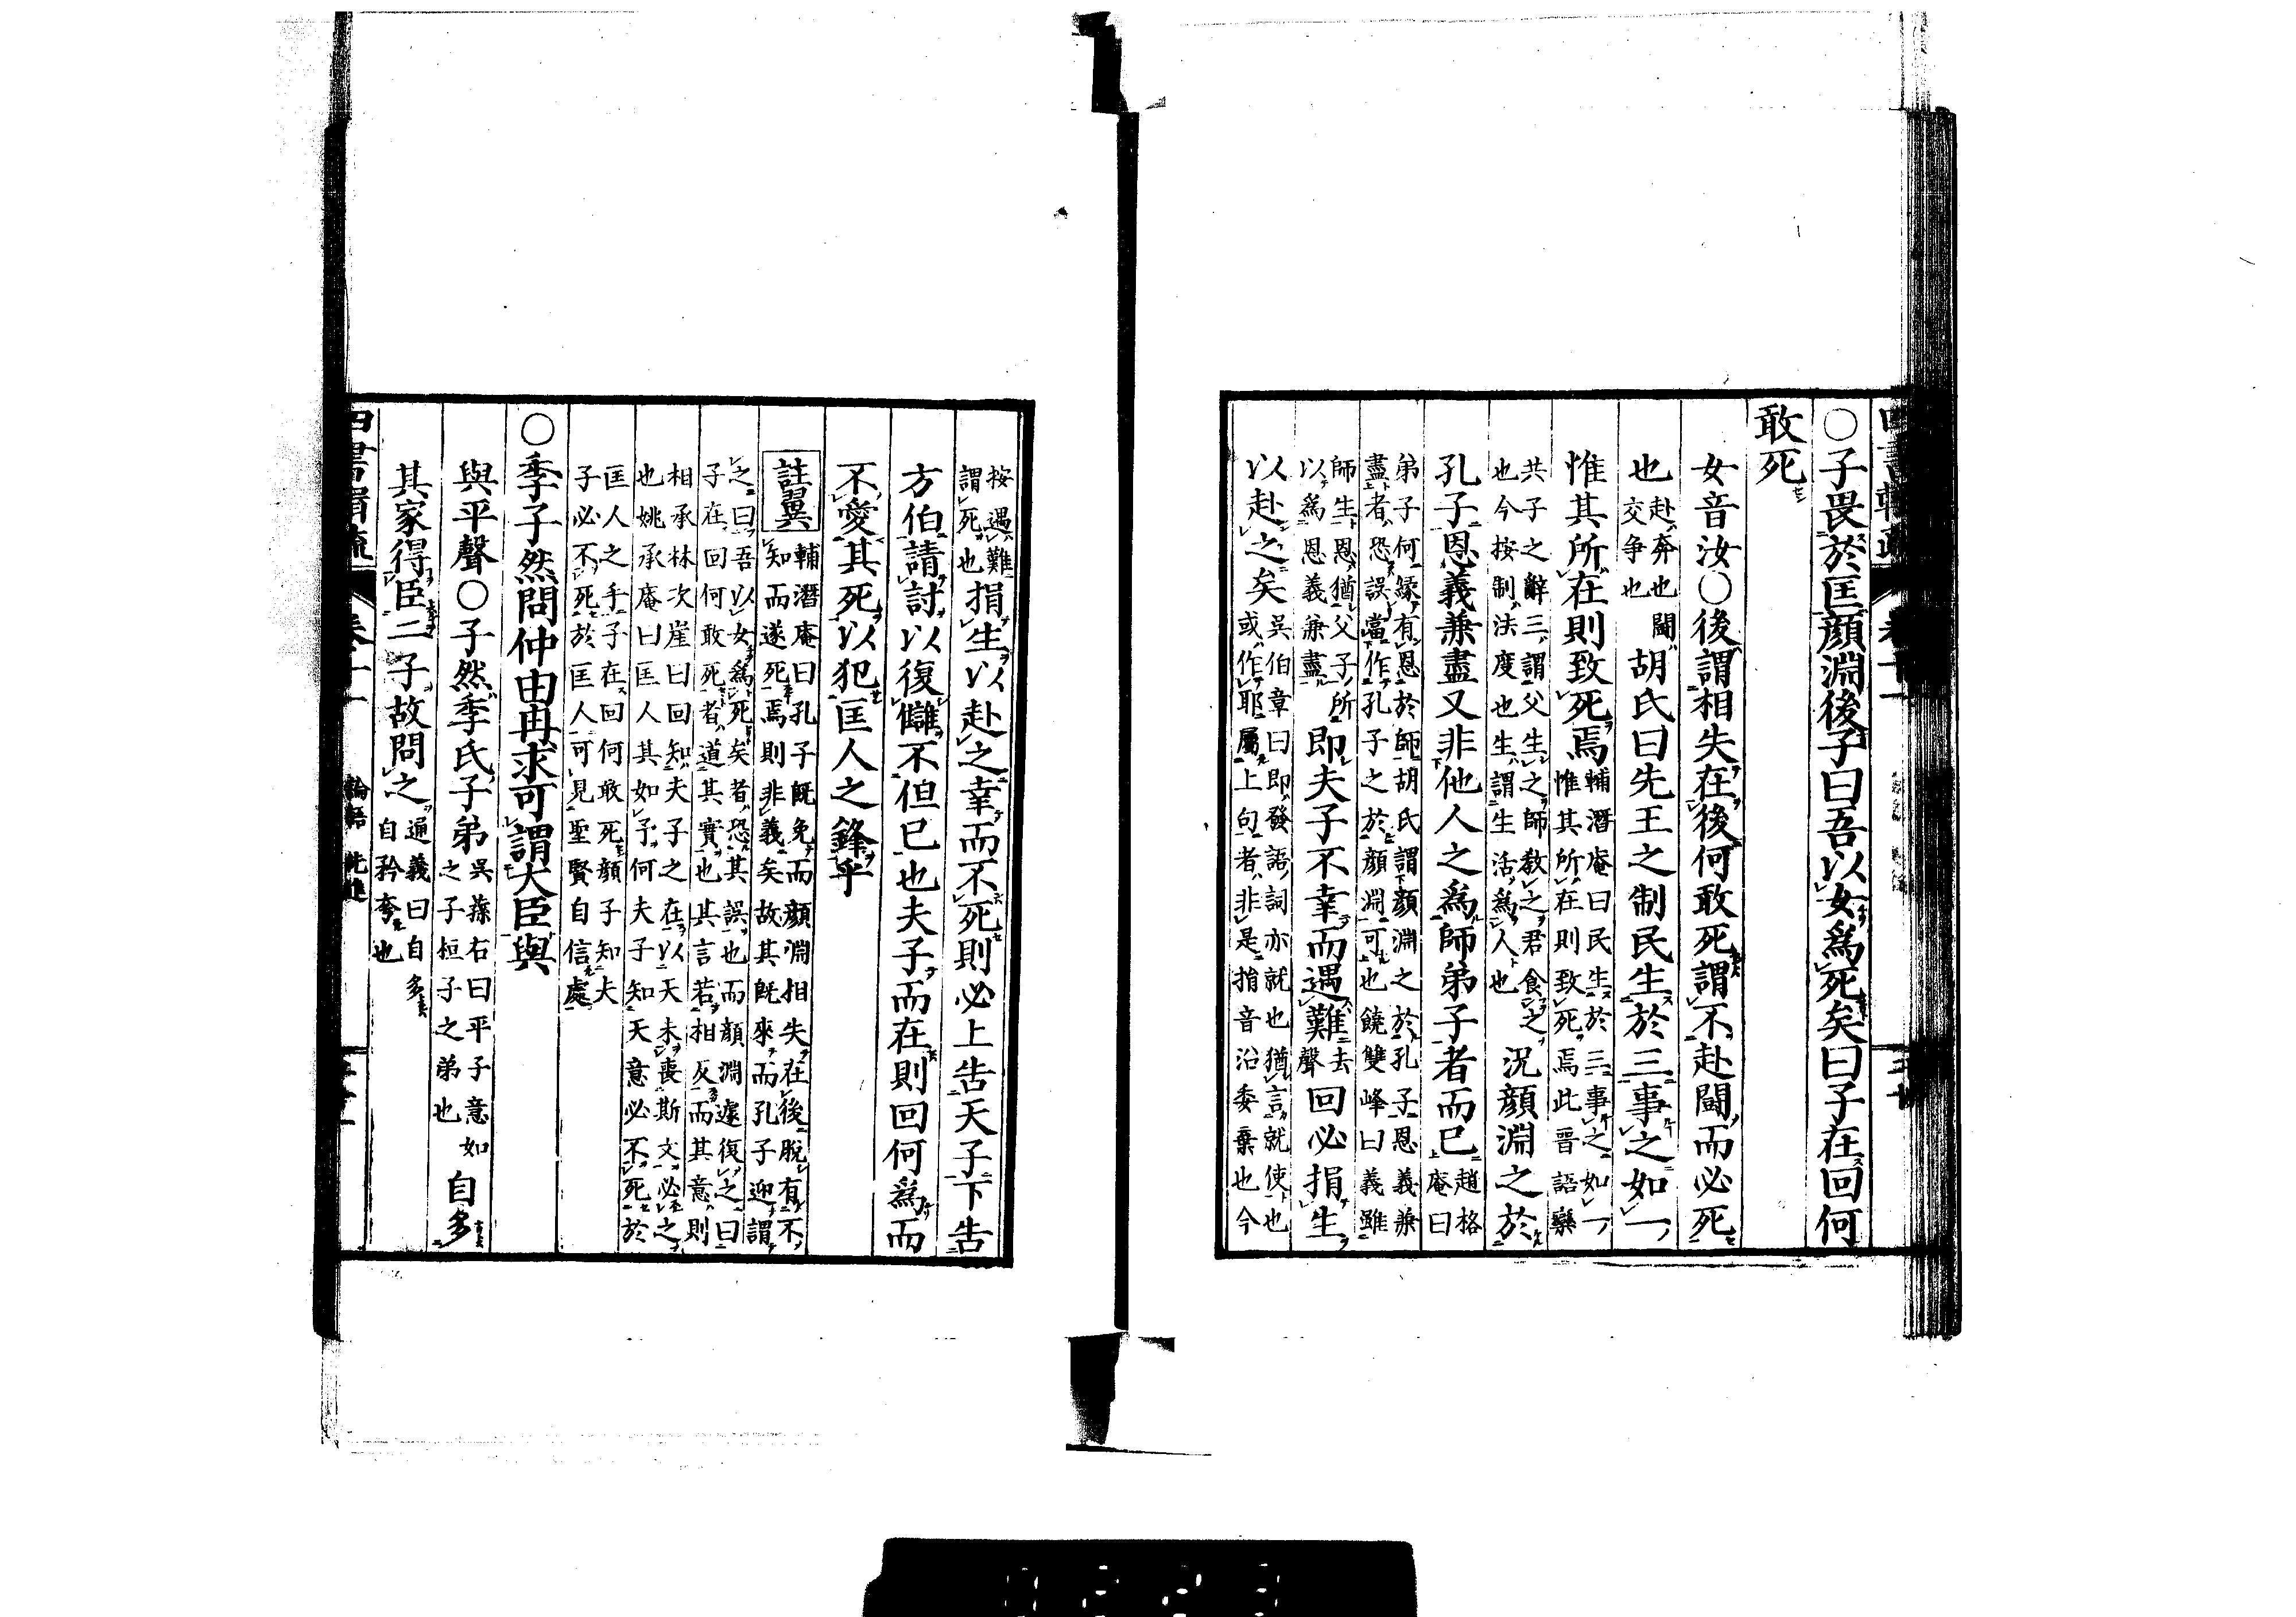 ○子畏於匡顔淵後子曰吾以女爲死矣曰子在回何
敢死
女音汝○後謂相失在後何敢死謂不赴鬪而必死
也赴奔也鬪
交争也
胡氏曰先王之制民生於三事之如一
惟其所在則致死焉輔潛庵曰民生於三事之如一
惟其所在則致死焉此晋語欒
共子之辭三謂父生之師教之君食之
也今按制法度也生謂生活爲人也
況顔淵之於
孔子恩義兼盡又非他人之爲師弟子者而已趙格
庵曰
弟子何縁有恩於師胡氏謂顔淵之於孔子恩義兼
盡者恐誤當作孔子之於顔淵可也饒雙峰曰義雖
師生恩猶父子所
以爲恩義兼盡
即夫子不幸而遇難去
聲
回必捐生
以赴之矣呉伯章曰即發語詞亦就也猶言就使也
或作耶屬上句者非是捐音沿委棄也今
按遇難
謂死也
捐生以赴之幸而不死則必上告天子下告
方伯請討以復讎不但已也夫子而在則回何爲而
不愛其死以犯匡人之鋒乎
註翼
輔潛庵曰孔子既免而顔淵相失在後脱有不
知而遂死焉則非義矣故其既來而孔子迎謂
之曰吾以女爲死矣者恐其誤也而顔淵遽復之曰
子在回何敢死者道其實也其言若相反而其意則
相承林次崖曰回知夫子之在以天未喪斯文必之
也姚承庵曰匡人其如予何夫子知天意必不死於
匡人之手子在回何敢死顔子知夫
子必不死於匡人可見聖賢自信處
○季子然問仲由冉求可謂大臣與
與平聲○子然季氏子弟呉蓀右曰平子意如
之子桓子之弟也
自多
其家得臣二子故問之通義曰自多
自矜夸也
論語 先進